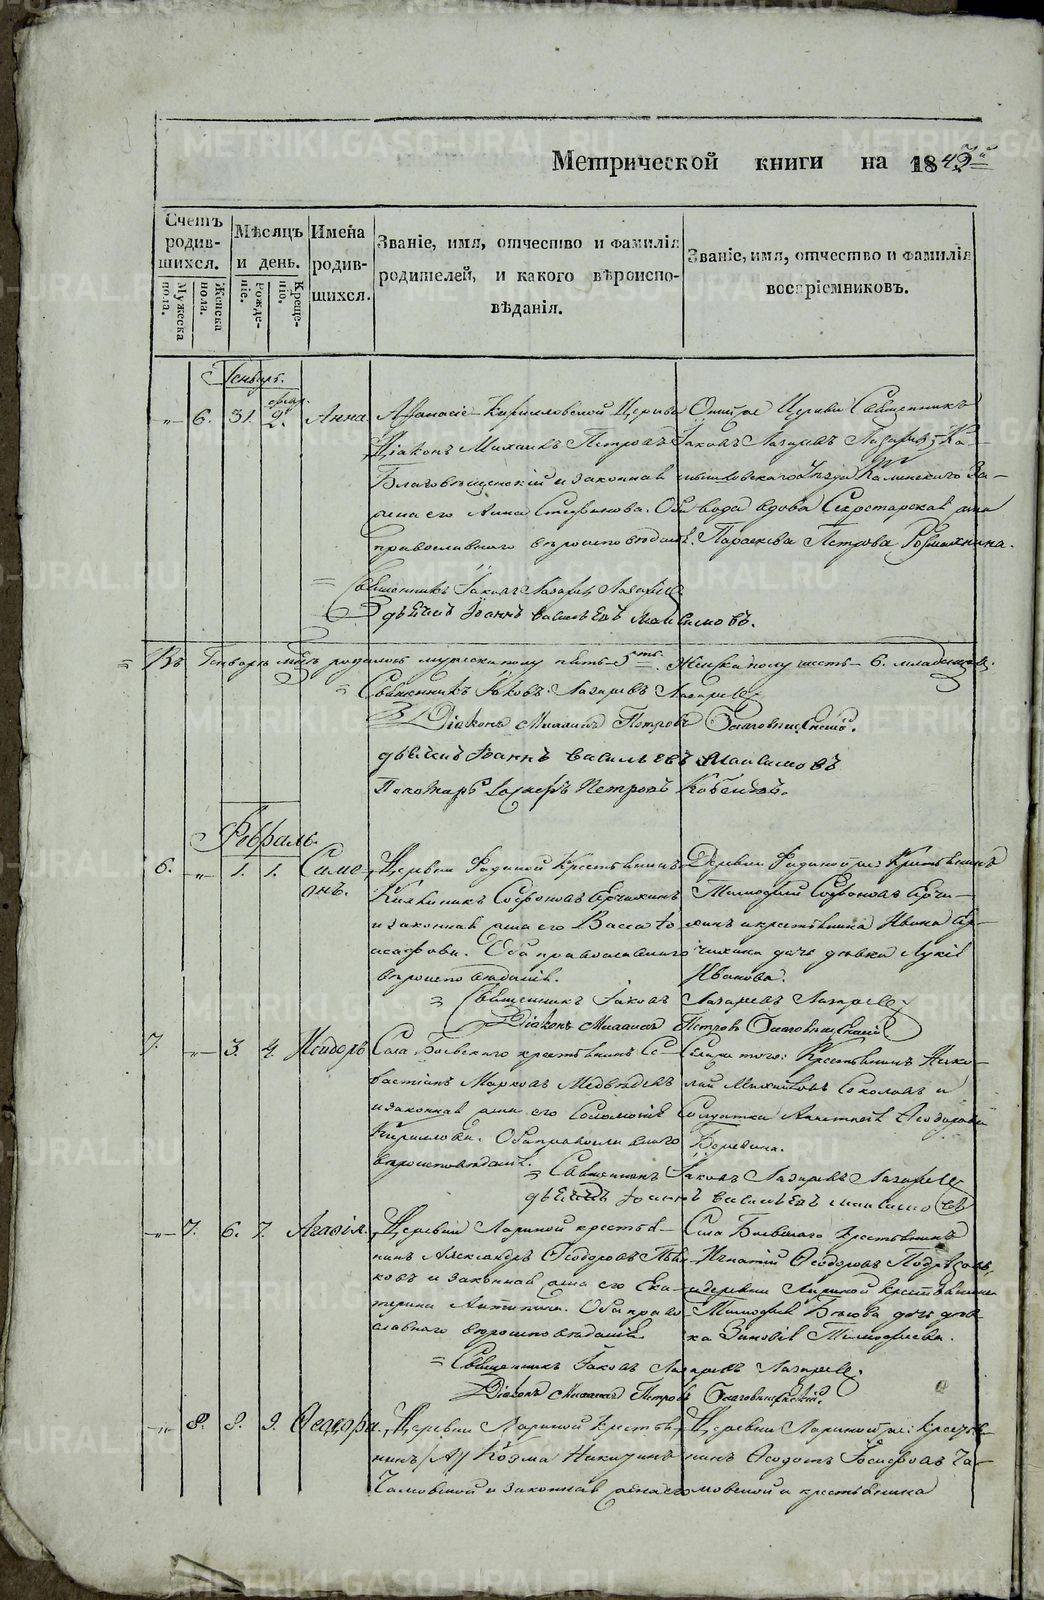 Метрической книги на 1842й
Счетъ родив- шихся.
Мужеска пола.
Женска пола.
Мѣсяцъ и день.
Рожде- ніе.
Креще- ніе.
Имена родив- шихся.
Званіе, имя, отчество и фамилія
родителей, и какого вѣроиспо-
вѣданія.
Званіе, имя, отчество и фамилія
воспріемниковъ.
Генварь.
6. 31. февр. 2. Анна
Афанасіе-Кирилловской Церкви
Діаконъ Михаилъ Петровъ
Благовѣщенскій и законная
жена его Анна Стефанова. Оба
православнаго вѣроисповѣданія.
Опитое Церкви Священникъ
Іаковъ Лазаревъ Лазаревъ, Ка-
мышловскаго Уѣзда Каменскаго За-
вода вдова Секретарская жена
Параскева Петрова
Священникъ Іаковъ Лазаревъ Лазаревъ
Дьячекъ Іоаннъ Васильевъ Максимовъ.
Въ Генварѣ мцѣ родилось мужеска полу пять 5ть. Женска полу шесть 6. младенцовъ.
Священникъ Іаковъ Лазаревъ Лазаревъ
Діаконъ Михаилъ Петровъ Благовѣщенскій.
дьячекъ Іоаннъ Васильевъ Максимовъ
Пономарь Петровъ
Февраль
6. 1. 1. Симе-
онъ.
Деревни Фадиной Крестьянинъ
Софоновъ Ерчихинъ
и законная жена его Васса Іо-
асафова. Оба православнаго
вѣроисповѣданія.
Деревни Фадиной Крестьянинъ
Тимофей Софоновъ Ерчи-
хинъ и крестьянина Ивана Ер-
чихина дочь дѣвка Лукія
Иванова.
Священникъ Іаковъ Лазаревъ Лазаревъ
Діаконъ Михаилъ Петровъ Благовѣщенскій
7. 3. 4. Исидоръ
Села Боевскаго крестьянинъ Се-
вастіанъ Марковъ Медвѣдевъ
и законная жена его Соломонія
Кириллова. Оба православнаго
вѣроисповѣданія.
Села того: Крестьянинъ Нико-
лай Михайловъ Соколовъ и
Солдатка Анастасія Ѳеодорова
Священникъ Іаковъ Лазаревъ Лазаревъ
дьячекъ Іоаннъ Васильевъ Максимовъ
7. 6. 7. Агафія.
Деревни Лариной крестья-
нинъ Александръ Ѳеодоровъ Пья-
ковъ и законная жена его Ека-
терина Антипина. Оба право-
славнаго вѣроисповѣданія.
Села Боевскаго Крестьянинъ
Игнатій Ѳеодоровъ
и деревни Лариной крестьянина
Тимофея Быкова дочь дѣв-
ка Зиновія Тимофеева.
Священникъ Іаковъ Лазаревъ Лазаревъ.
Діаконъ Михаилъ Петровъ Благовѣщенскій.
8. 8. 9. Ѳеодора.
Деревни Лариной крестья-
нинъ Козма Никитинъ
Чамовской и законная жена его
Деревни Лариной крестья-
нинъ Ѳеодотъ Іосифовъ Ча-
мовской и крестьянина
METRIKI.GASO-URAL.RU